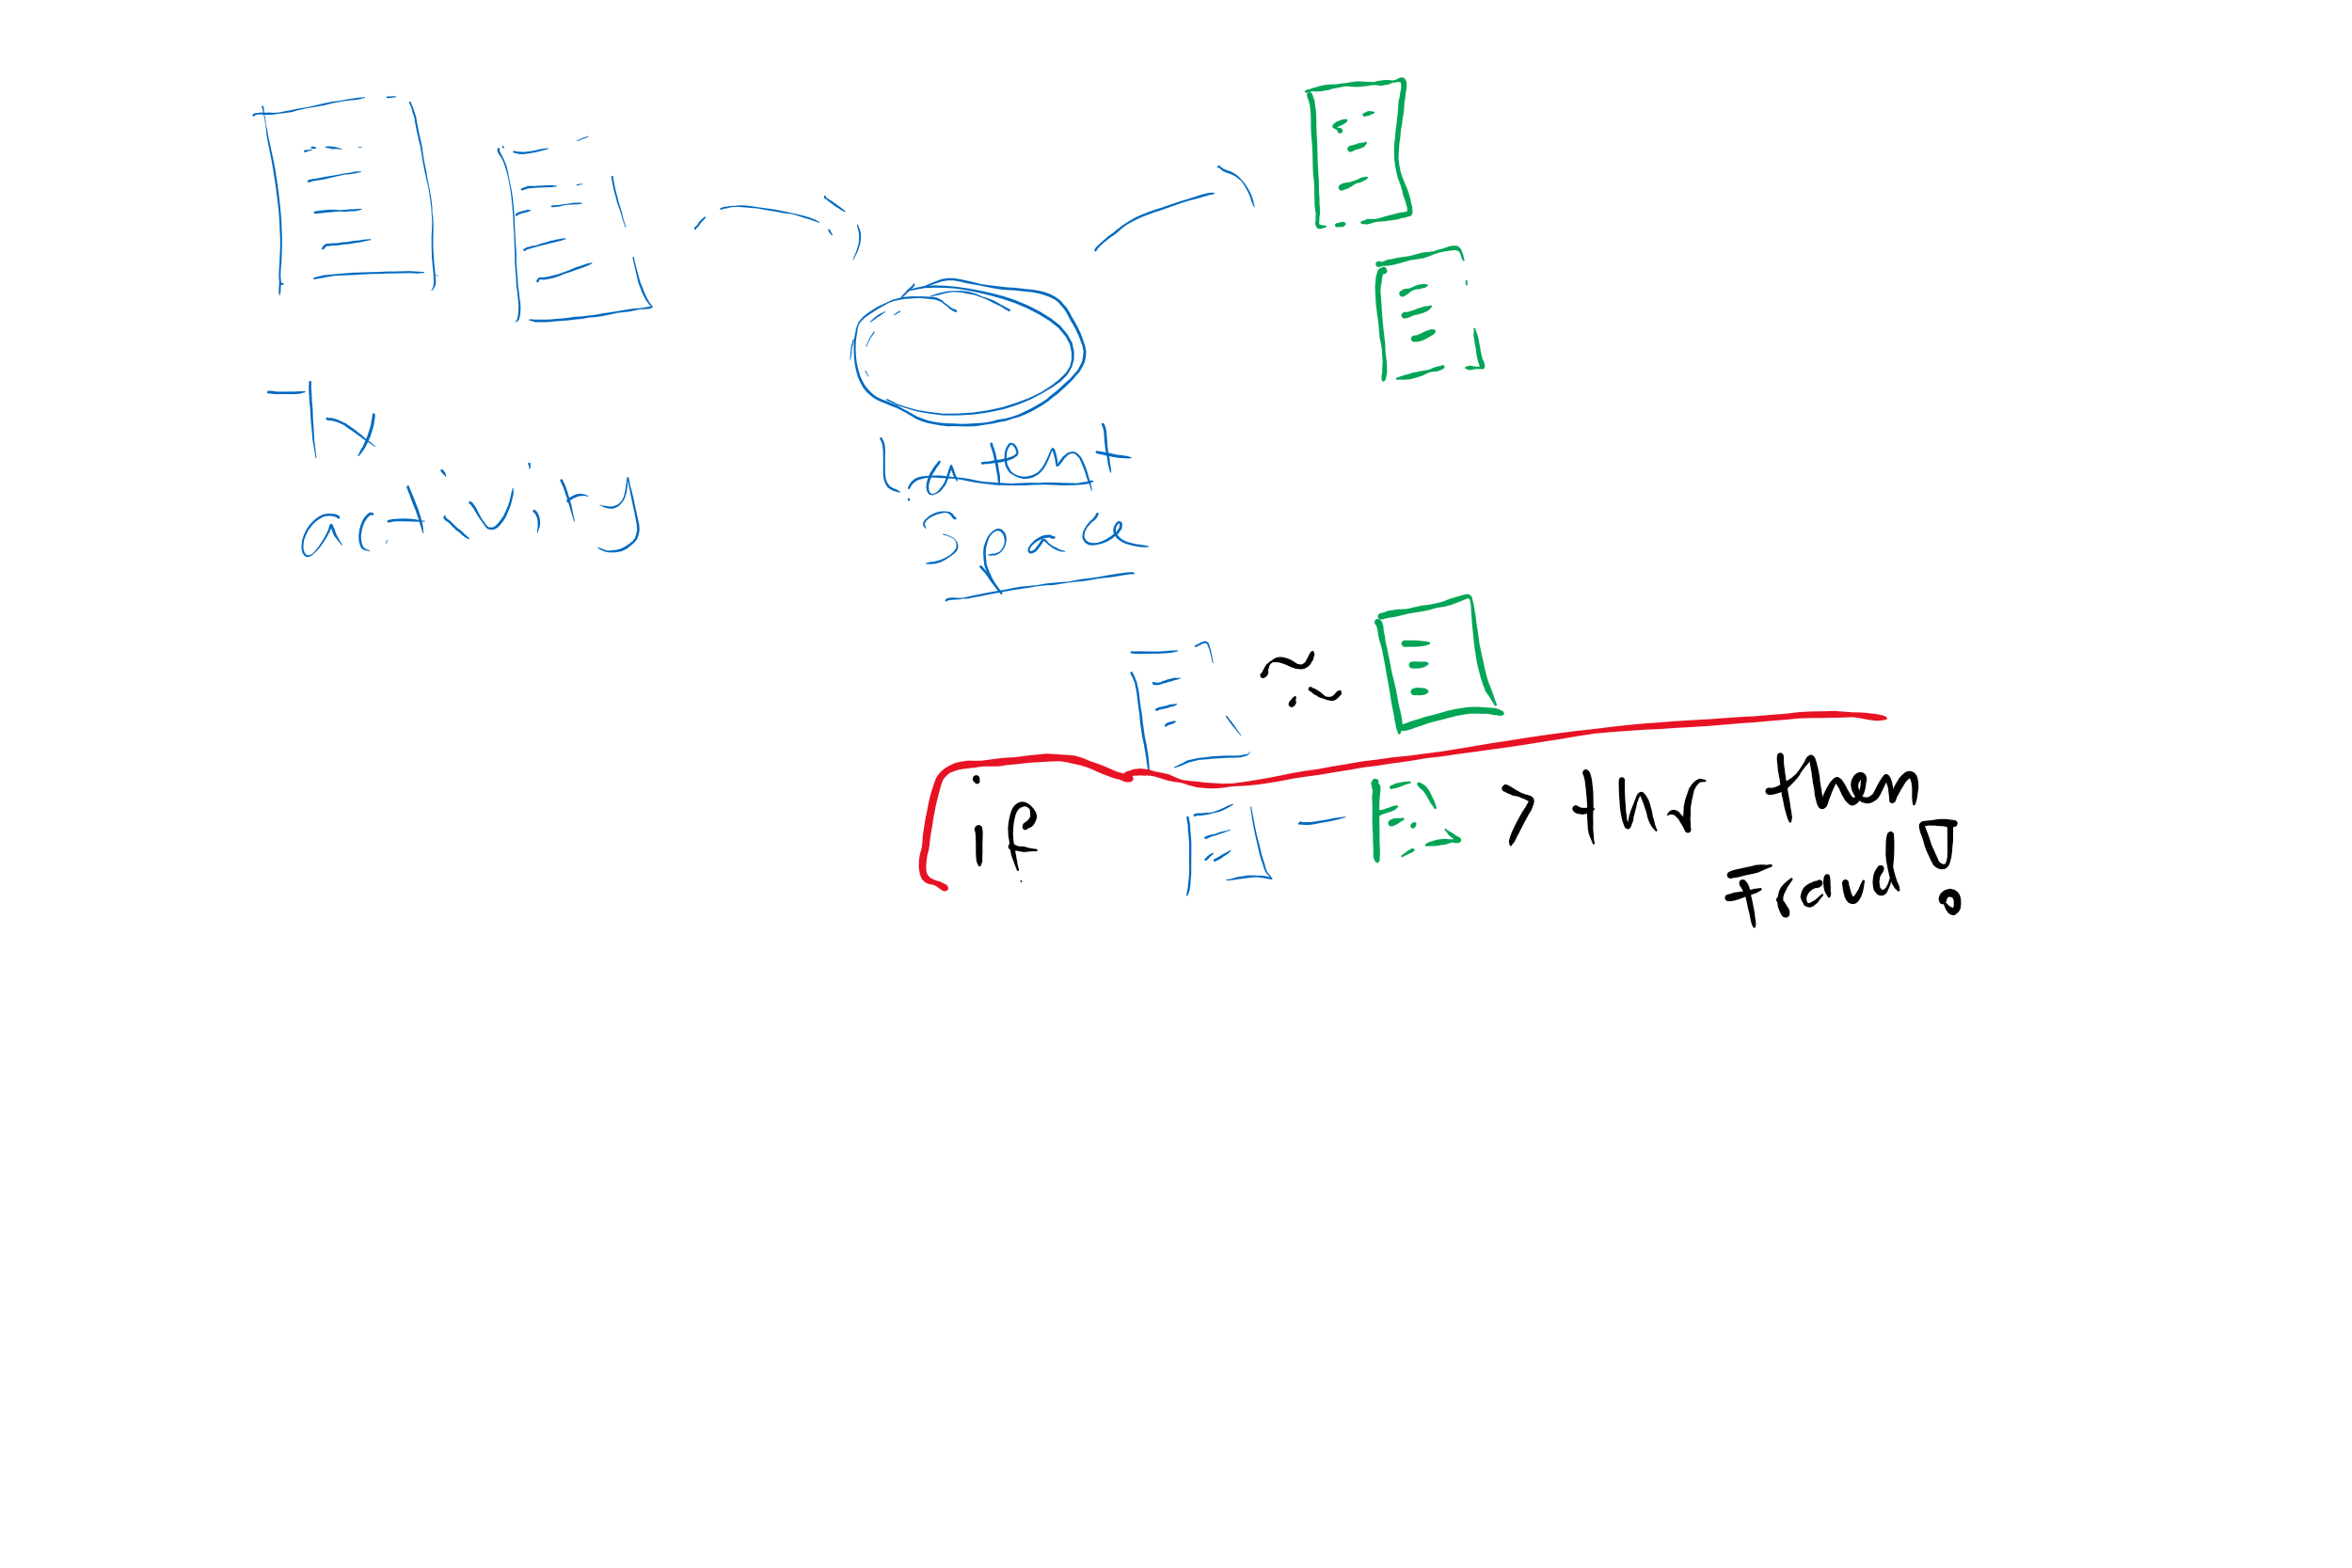 Tx
activity
Latent
Space
≈
if - > thr then
Fraud!